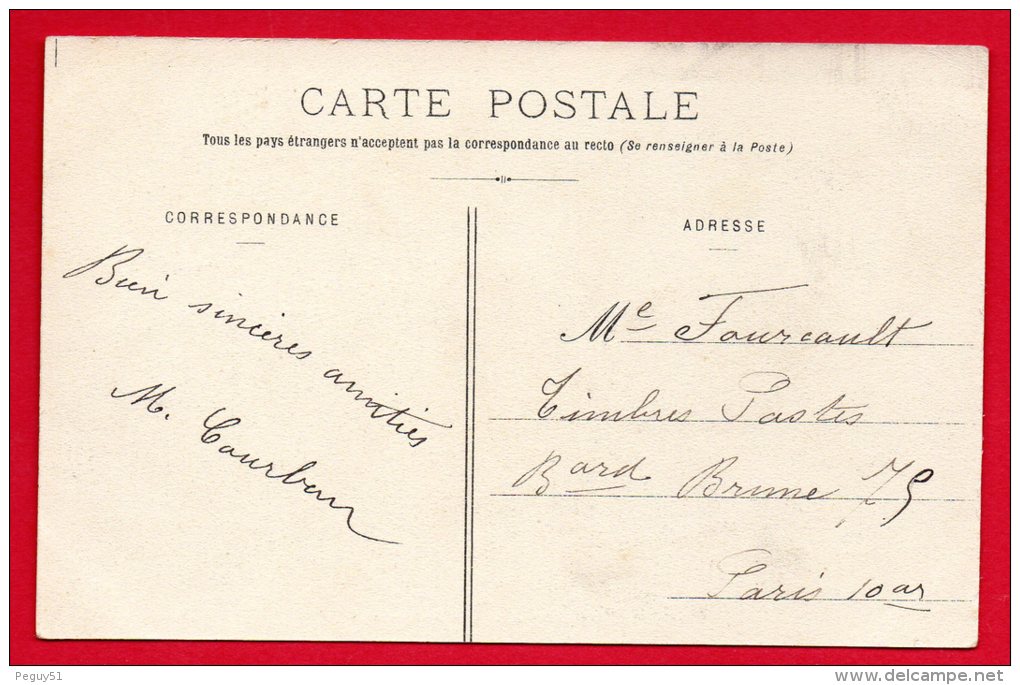 CARTE POSTALE
Tous les pays étrangers n'acceptent pas la correspondance au recto (Se renseigner à la Poste)
CORRESPONDANCE
Bien sincères amitiés
M. Courbon
ADRESSE
Me Fourcault
Timbres Postes
Bard Brune 75
Paris 10ar
Peguy51
www.delcampe.net